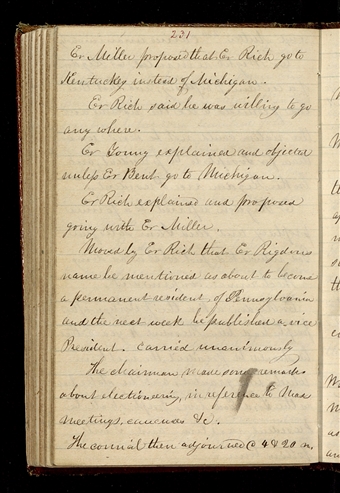 231
Er Miller proposed that Er Rich go to
Kentuckey instead of Michigan.
Er Rich said he was willing to go
any where.
Er Young explained and objected
unless Er Bent go to Michigan.
Er Rich explained and proposed
going with Er Miller.
Moved by Er Rich that Er Rigdons
name be mentioned as about to become
a permanent resident of Pennsylvania
and the next week be published a vice
President. carried unanimously
The chairman made some remarks
about electioneering, in reference to Mass
meetings, caucuses &c.
The council then adjourned @ 4 & 20 m.